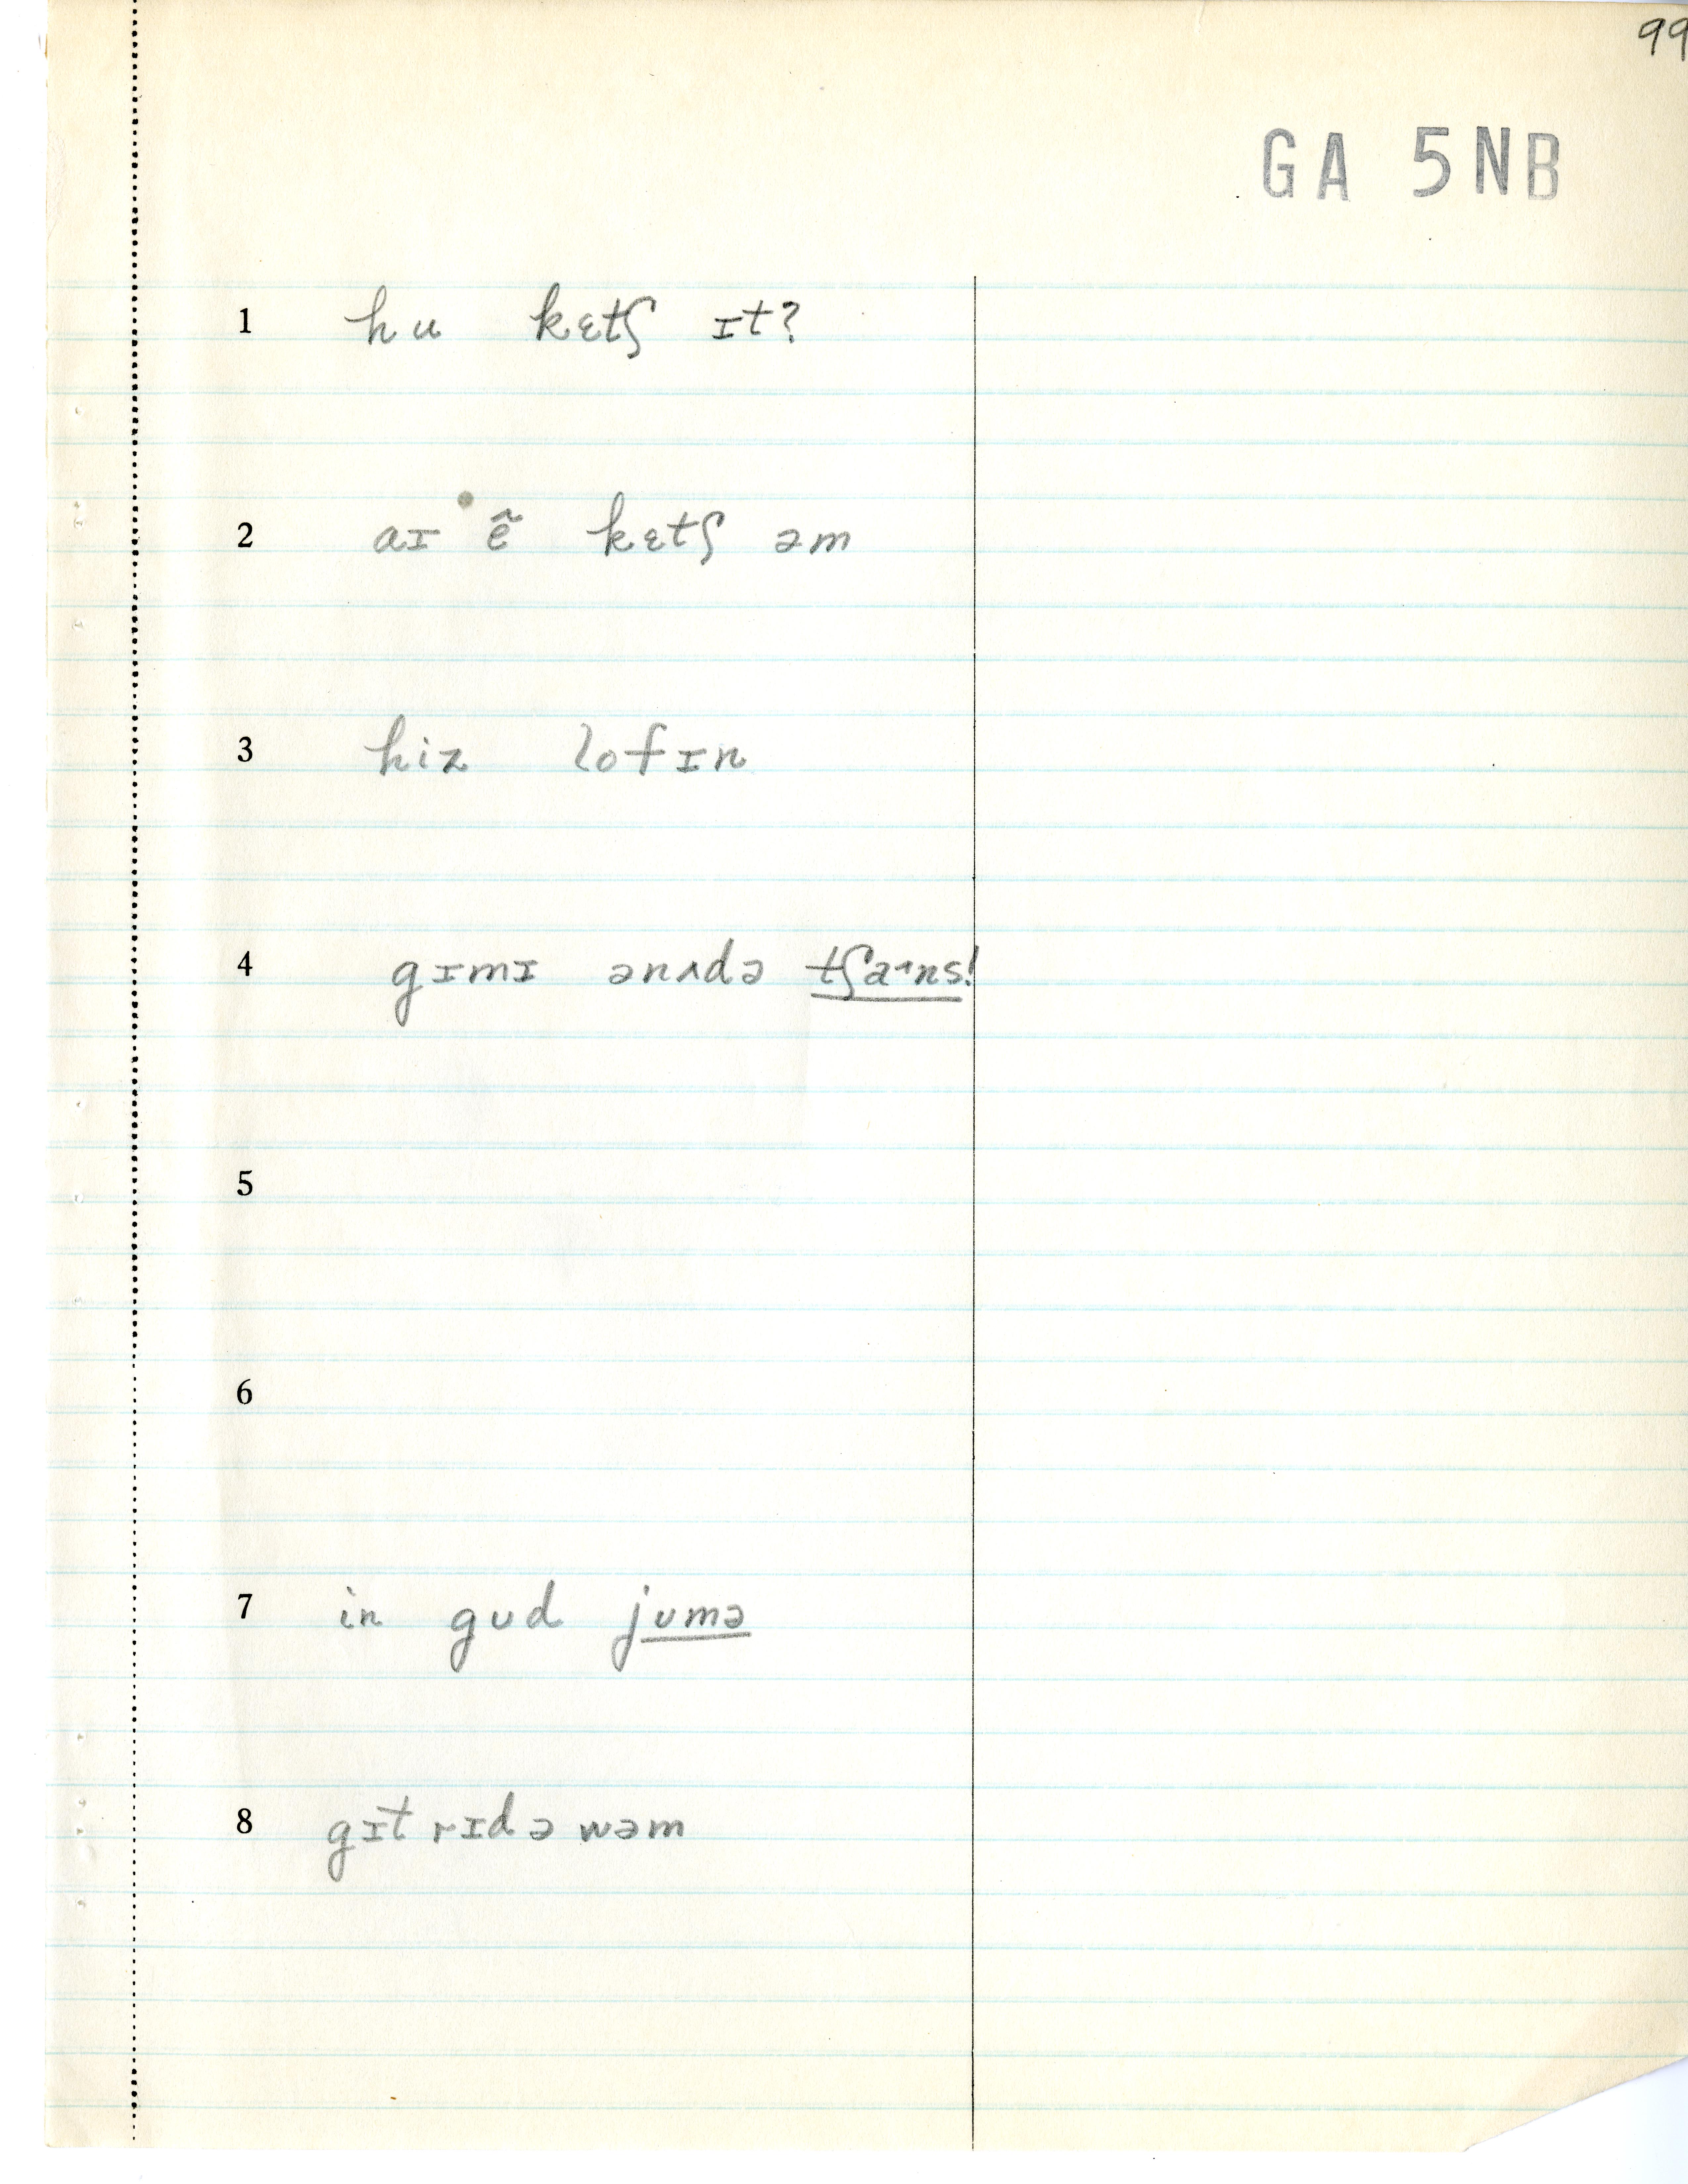 99
GA 5NB
1 hu kɛtʃ ɪt?
2 aɪ ẽ kɛtʃ əm
3 hiz lofɪn
4 gɪmɪ ənʌdə tʃa˔ns!
5
6
7 in gud jumə
8 gɪt rɪdə wəm